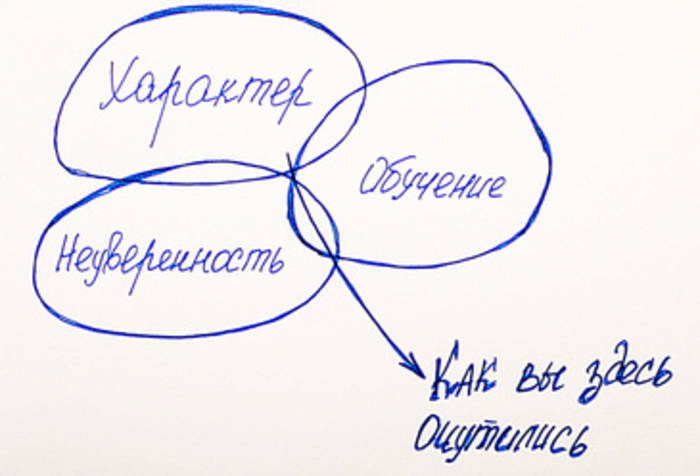 Характер
Обучение
Неуверенность
Как вы здесь
Очутились